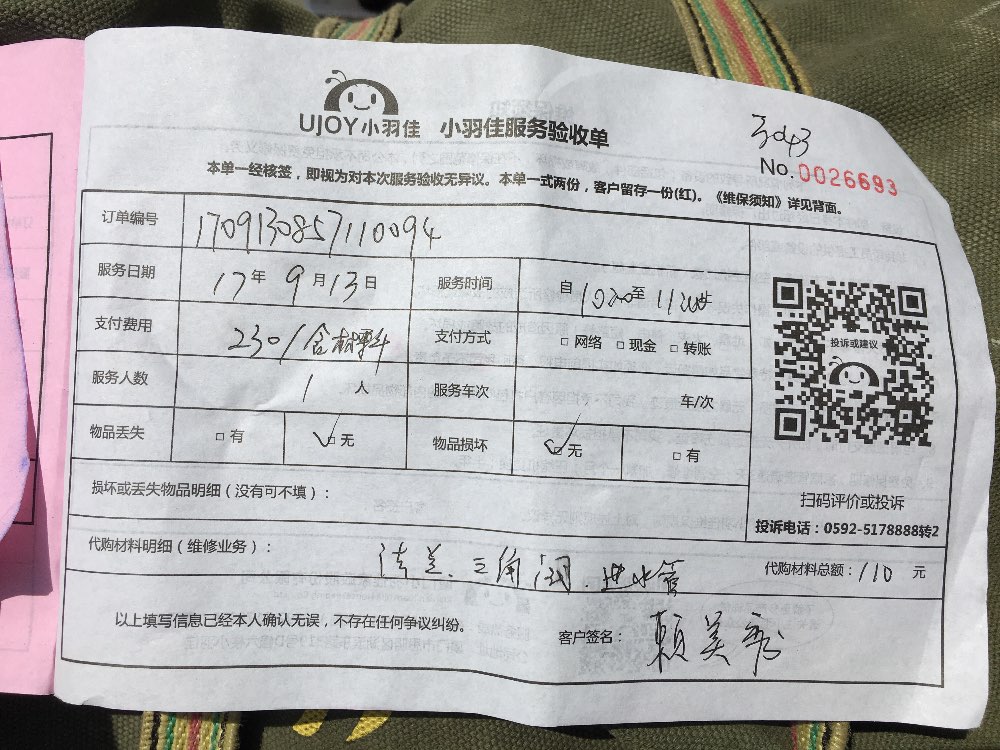 UJOY小羽佳 小羽佳服务验收单
3043
No.0026693
本单一经核签，即视为对本次服务验收无异议。本单一式两份，客户留存一份(红)。《维保须知》详见背面。
订单编号 170913085711 0094
服务日期 17年9月13日 服务时间 自1020至1120
支付费用 230/含材料 支付方式 □网络 □现金 □转账
服务人数 1人 服务车次 车/次
物品丢失 □有 ☑无 物品损坏 ☑无 □有
投诉或建议
损坏或丢失物品明细（没有可不填）：
扫码评价或投诉
投诉电话：0592-5178888转2
代购材料明细（维修业务）： 法兰、三角阀、进水管 代购材料总额：110 元
以上填写信息已经本人确认无误，不存在任何争议纠纷。
客户签名： 赖美秀